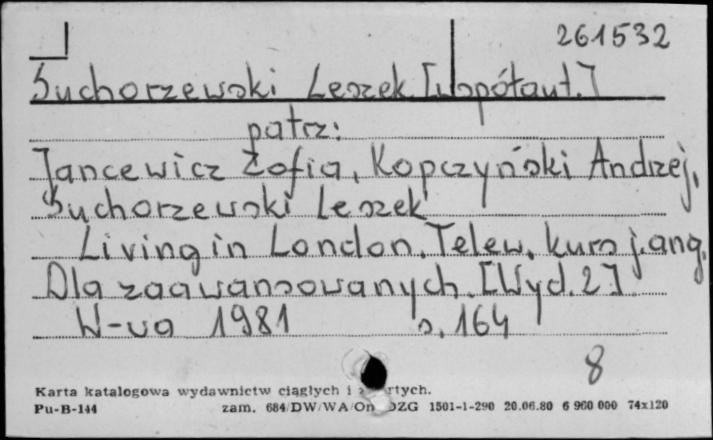 261532
Suchorzewski Leszek [współaut.]
patrz:
Jancewicz Zofia, Kopczyński Andrzej,
Suchorzewski Leszek
Living in London. Telew. kurs j. ang.
Dla zaawansowanych. [Wyd. 2]
W-wa 1981 s. 164
8
Karta katalogowa wydawnictw ciągłych i
Pu-B-144 zam. 684/DW/WA/On 1501-1-290 20.06.80 6 960 000 74x120